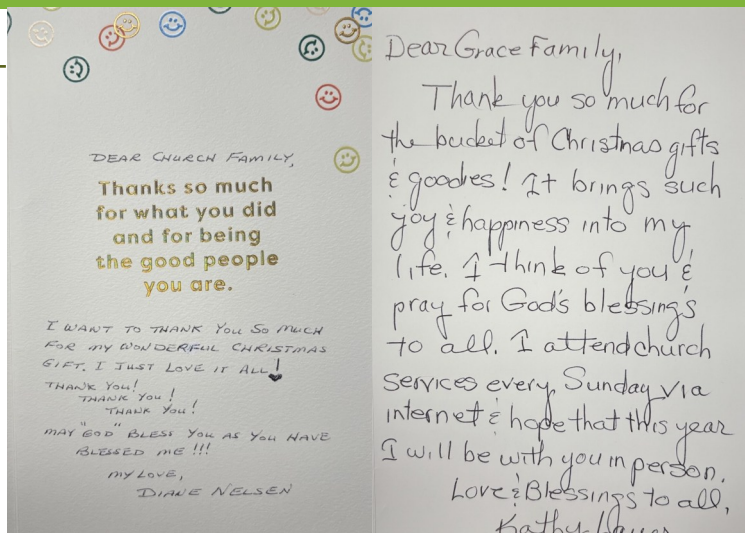 DEAR CHURCH FAMILY,
Thanks so much
for what you did
and for being
the good people
you are.
I WANT TO THANK YOU SO MUCH
FOR MY WONDERFUL CHRISTMAS
GIFT. I JUST LOVE IT ALL!
THANK YOU!
THANK YOU!
THANK YOU!
MAY "GOD" BLESS YOU AS YOU HAVE
BLESSED ME !!!
MY LOVE,
DIANE NELSEN
Dear Grace Family,
Thank you so much for
the bucket of Christmas gifts
& goodies! It brings such
joy & happiness into my
life. I think of you &
pray for God's blessing's
to all. I attend church
services every Sunday via
internet & hope that this year
I will be with you in person.
Love & Blessings to all,
Kathy